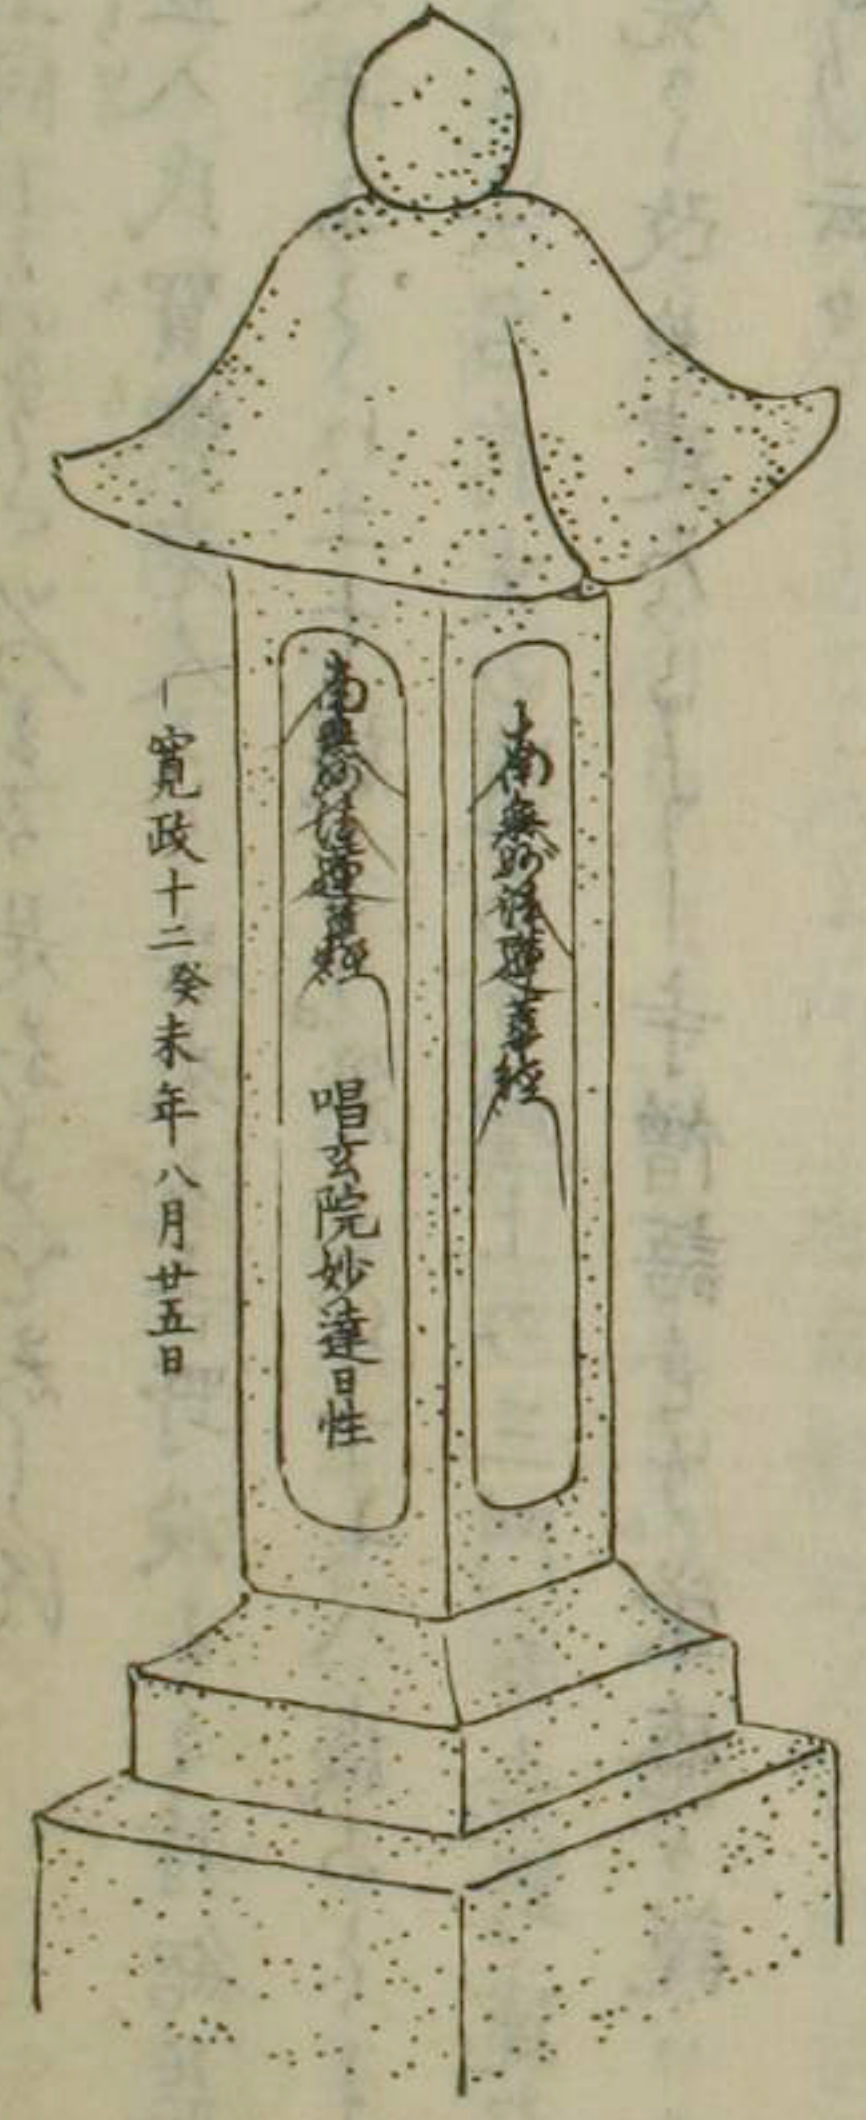 南無妙法蓮華経
南無妙法蓮華経　唱玄院妙達日性
寛政十二癸未年八月廿五日